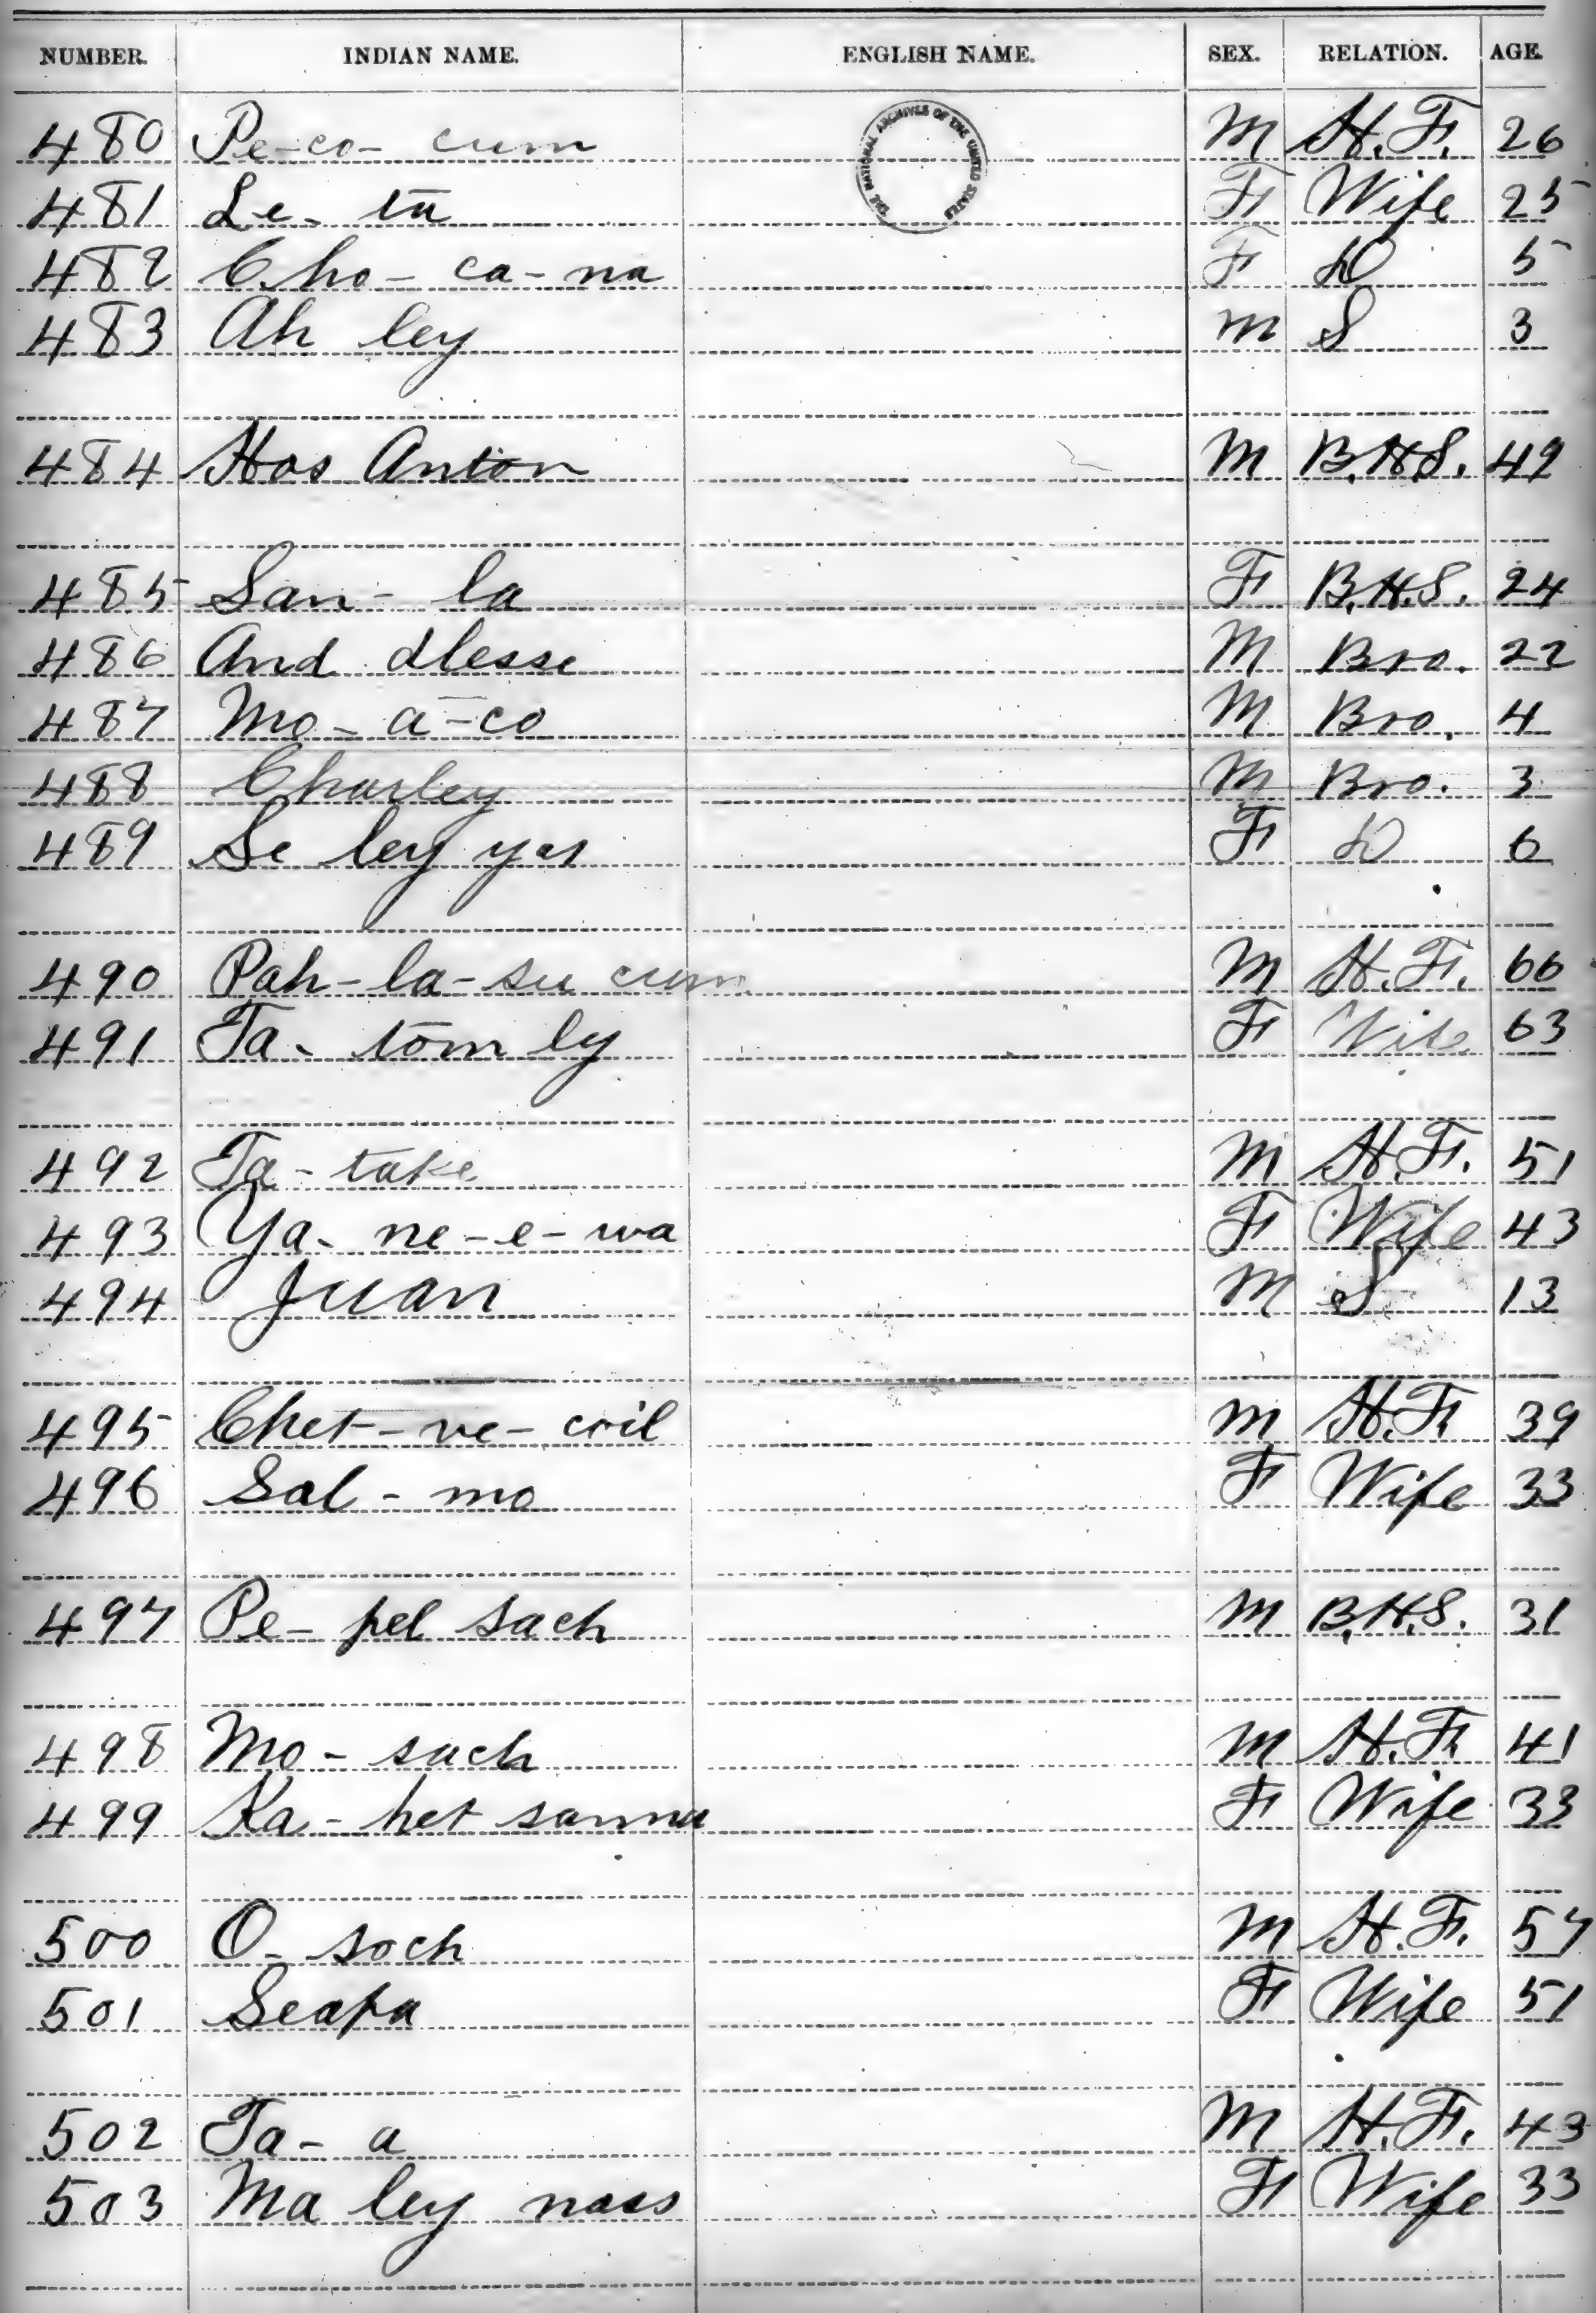 NUMBER. INDIAN NAME. ENGLISH NAME. SEX. RELATION. AGE.
THE NATIONAL ARCHIVES OF THE UNITED STATES
480 Pe-co-cum M H.F. 26
481 Le-ta F Wife 25
482 Cho-ca-na F D 5
483 Ah ley M S 3
484 Hos Anton M B.H.S. 49
485 San-la F B.H.S. 24
486 And dlesse M Bro. 22
487 Mo-a-co M Bro. 4
488 Charley M Bro. 3
489 Se ley yas F D 6
490 Pah-la-su cum M H.F. 66
491 Ta-tom ly F Wife 63
492 Ta-take M H.F. 51
493 Ya-ne-e-wa F Wife 43
494 Juan M S 13
495 Chet-ve-coil M H.F. 39
496 Sal-mo F Wife 33
497 Pe-pel sach M B.H.S. 31
498 Mo-sach M H.F. 41
499 Ka-het sanna F Wife 33
500 O-soch M H.F. 57
501 Seapa F Wife 51
502 Ta-a M H.F. 43
503 Ma ley nass F Wife 33